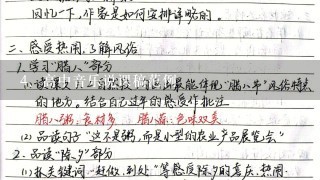 回忆一下,作家是如何安排详略的。
二、感受热闹,了解风俗
1.学习"腊八"部分
最能体现"腊八节"风俗特点
的地方。结合自己过年的感受作批注
腊八粥:食材多 腊八蒜:色味双美
(2)品读句子"这不是粥,而是小型的农业产品展览会"
2.品读"除夕"部分
(1)抓关键词"赶做、到处"等感受除夕的喜庆、热闹.